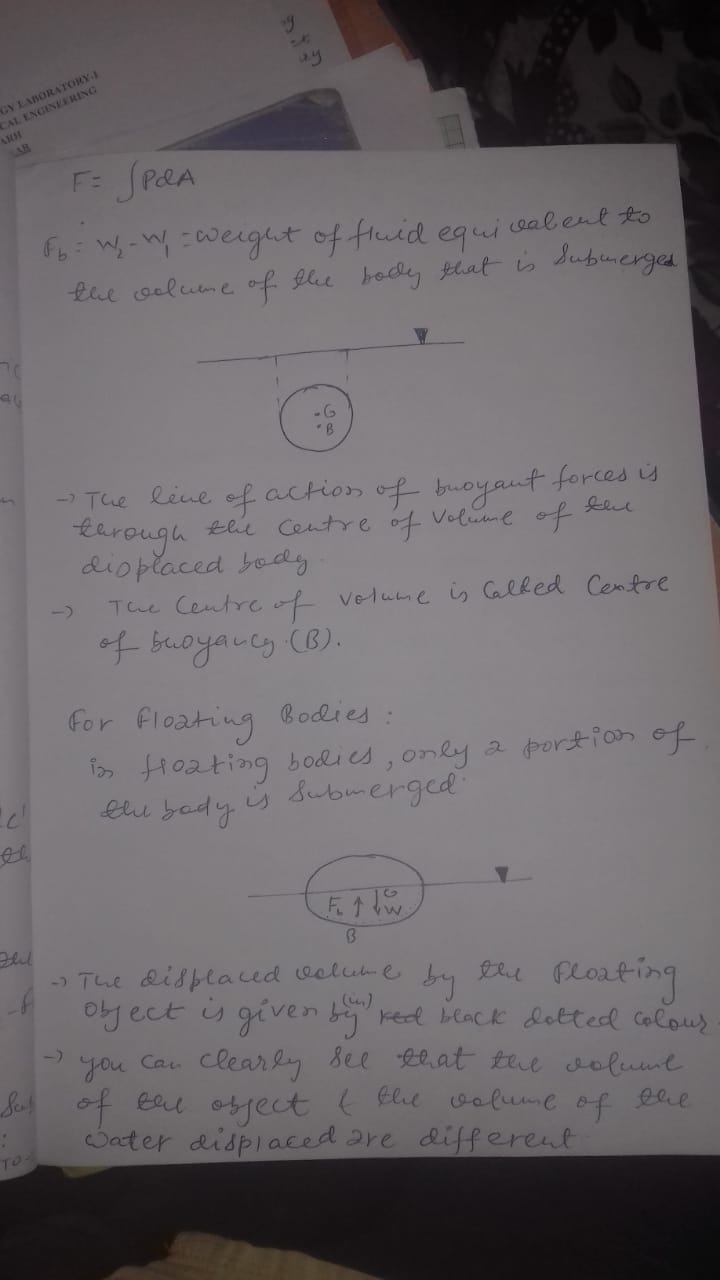 GY LABORATORY-I
CAL ENGINEERING
F = ∫PdA
Fb = W2-W1 = weight of fluid equivalent to
the volume of the body that is submerged
.G
.B
-> The line of action of buoyant forces is
through the centre of volume of the
displaced body.
-> The Centre of volume is Called Centre
of buoyancy (B).
For Floating Bodies :
in floating bodies, only a portion of
the body is submerged.
Fb ↑ ↓ G
W
B
-> The displaced volume by the floating
object is given by (in) red black dotted colour
-> you can clearly see that the volume
of the object & the volume of the
water displaced are different.